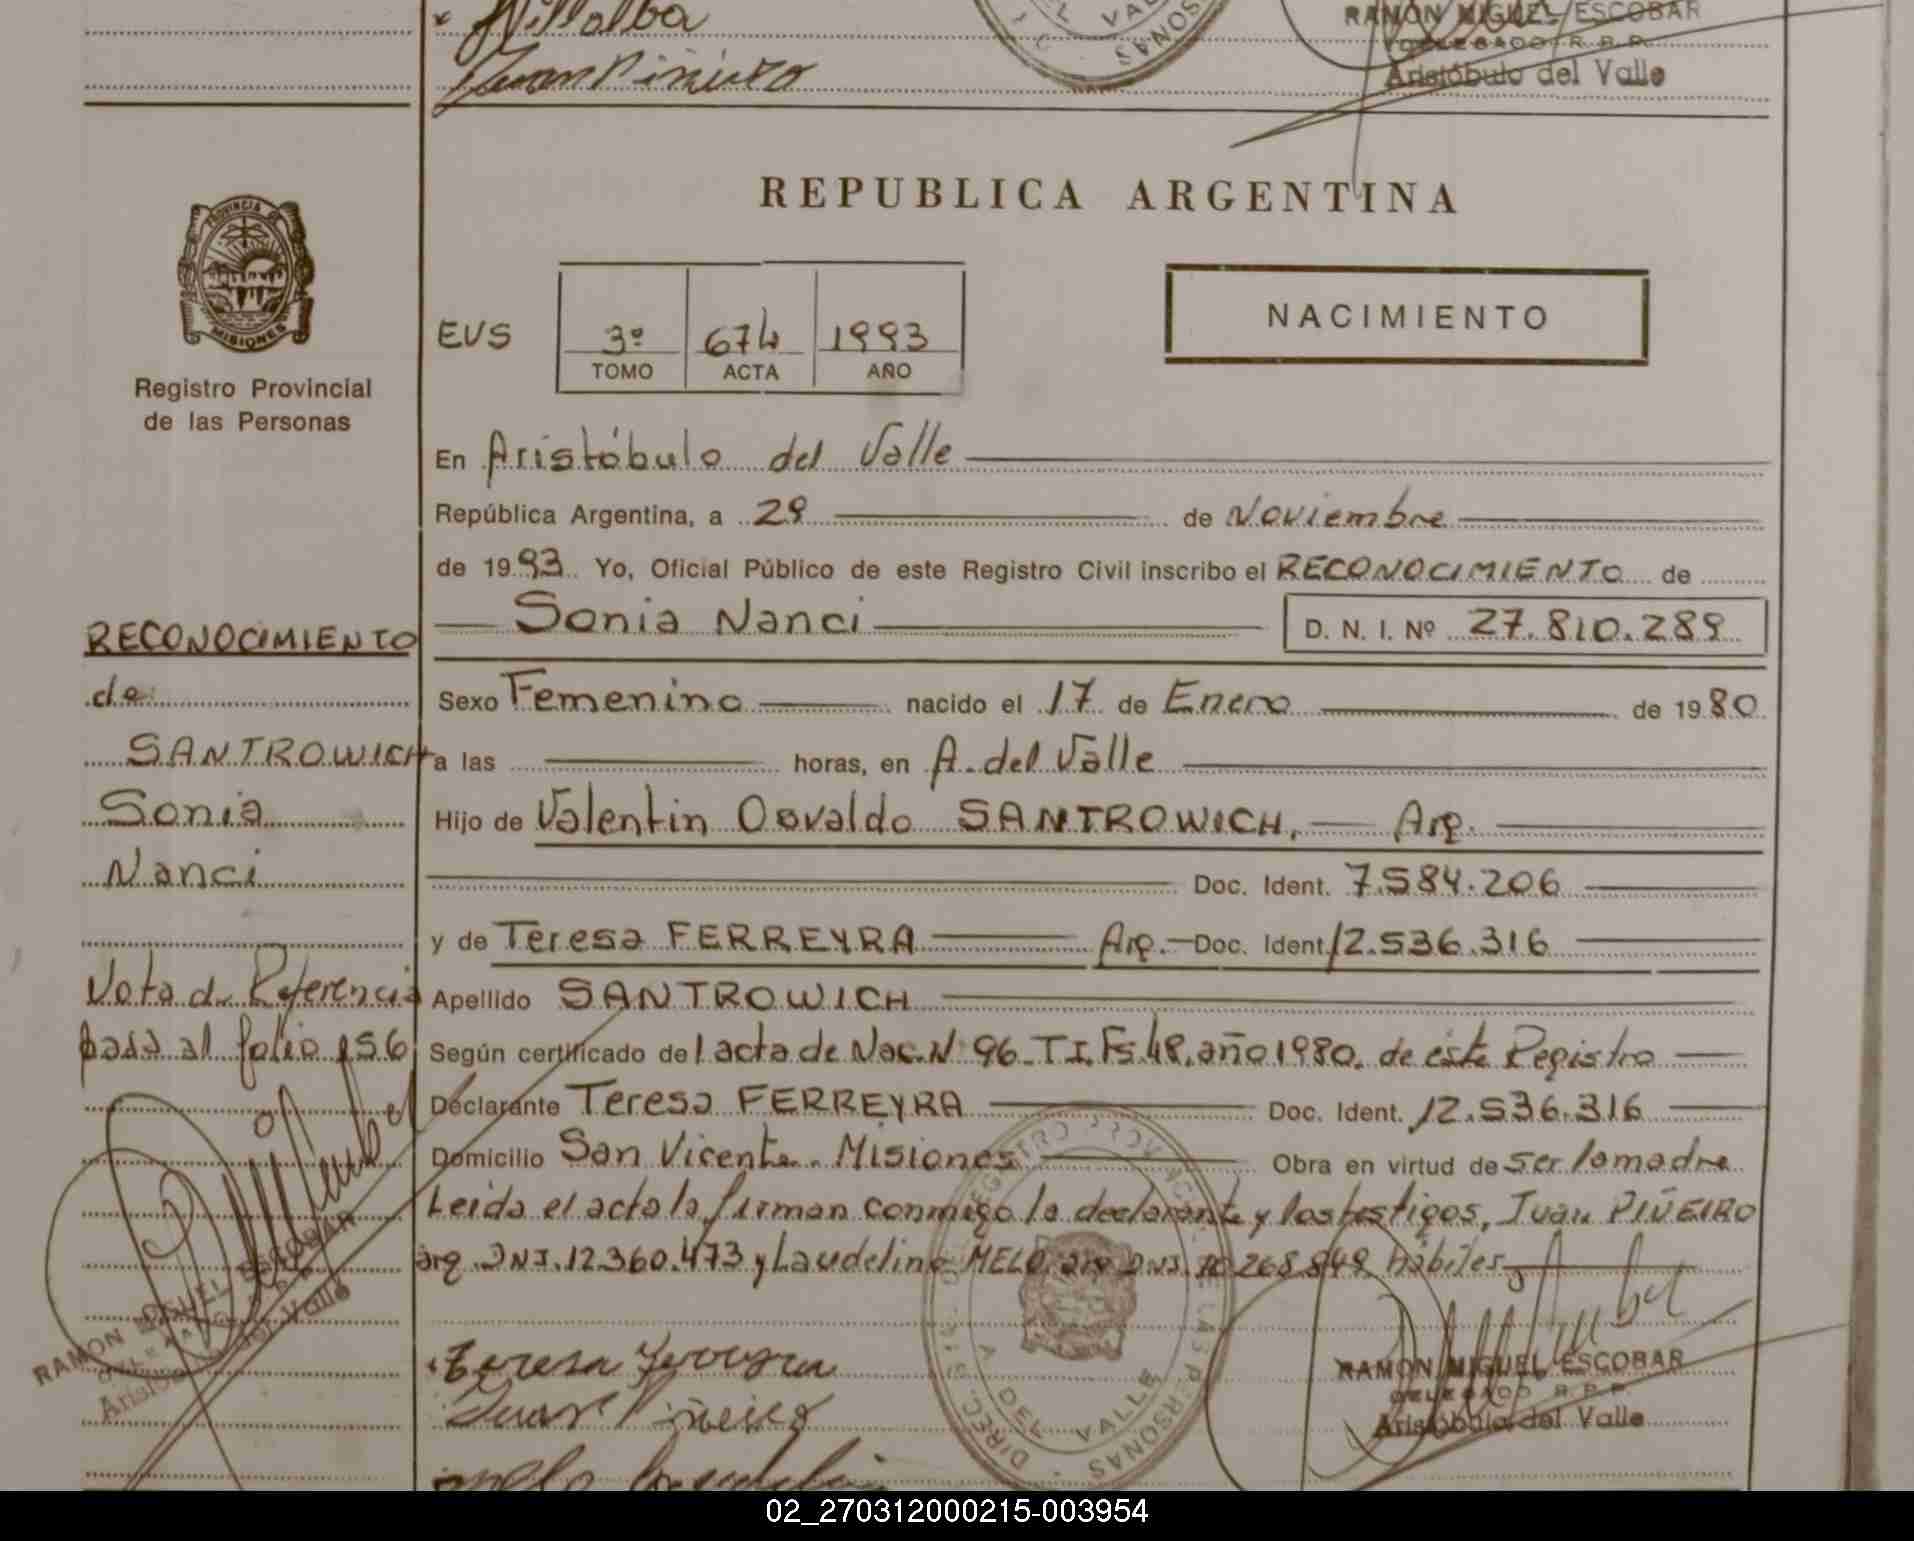 Villalba
Juan Piñeiro
RAMON MIGUEL ESCOBAR
DELEGADO R.P.P.
Aristóbulo del Valle
REPUBLICA ARGENTINA
PROVINCIA DE
MISIONES
Registro Provincial
de las Personas
EUS 3º 674 1993
TOMO ACTA AÑO
NACIMIENTO
En Aristóbulo del Valle
República Argentina, a 29 de Noviembre
de 1993 Yo, Oficial Público de este Registro Civil inscribo el RECONOCIMIENTO de
Sonia Nanci D. N. I. Nº 27.810.289
Sexo Femenino nacido el 17 de Enero de 1980
a las horas, en A. del Valle
Hijo de Valentin Osvaldo SANTROWICH, Arg.
Doc. Ident. 7.584.206
y de Teresa FERREYRA Arg. Doc. Ident. 12.536.316
Apellido SANTROWICH
Según certificado del acta de Nac. Nº 96 T.I. Fs 48, año 1980, de éste Registro
Declarante Teresa FERREYRA Doc. Ident. 12.536.316
Domicilio San Vicente - Misiones Obra en virtud de ser la madre
Leida el acta la firman conmigo la declarante y los testigos, Juan PIÑEIRO
arg. DNI. 12.360.473 y Laudelino MELO arg DNI. 10.268.849, hábiles,
RECONOCIMIENTO
de
SANTROWICH
Sonia
Nanci
Nota de Referencia
pasa al folio 156
RAMON MIGUEL ESCOBAR
DELEGADO R.P.P.
Aristóbulo del Valle
Teresa Ferreyra
Juan Piñeiro
DIREC. GRAL. REGISTRO PROVINCIAL DE LAS PERSONAS
A. DEL VALLE
RAMON MIGUEL ESCOBAR
DELEGADO R.P.P.
Aristóbulo del Valle
02_270312000215-003954